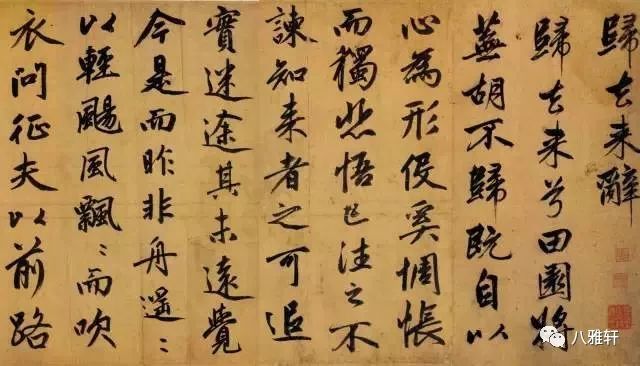 歸去来辭
歸去来兮田園將
蕪胡不歸既自以
心為形役奚惆悵
而獨悲悟已往之不
諫知来者之可追
實迷途其未遠覺
今是而昨非舟遥〻
以輕颺風飄〻而吹
衣問征夫以前路
八雅轩